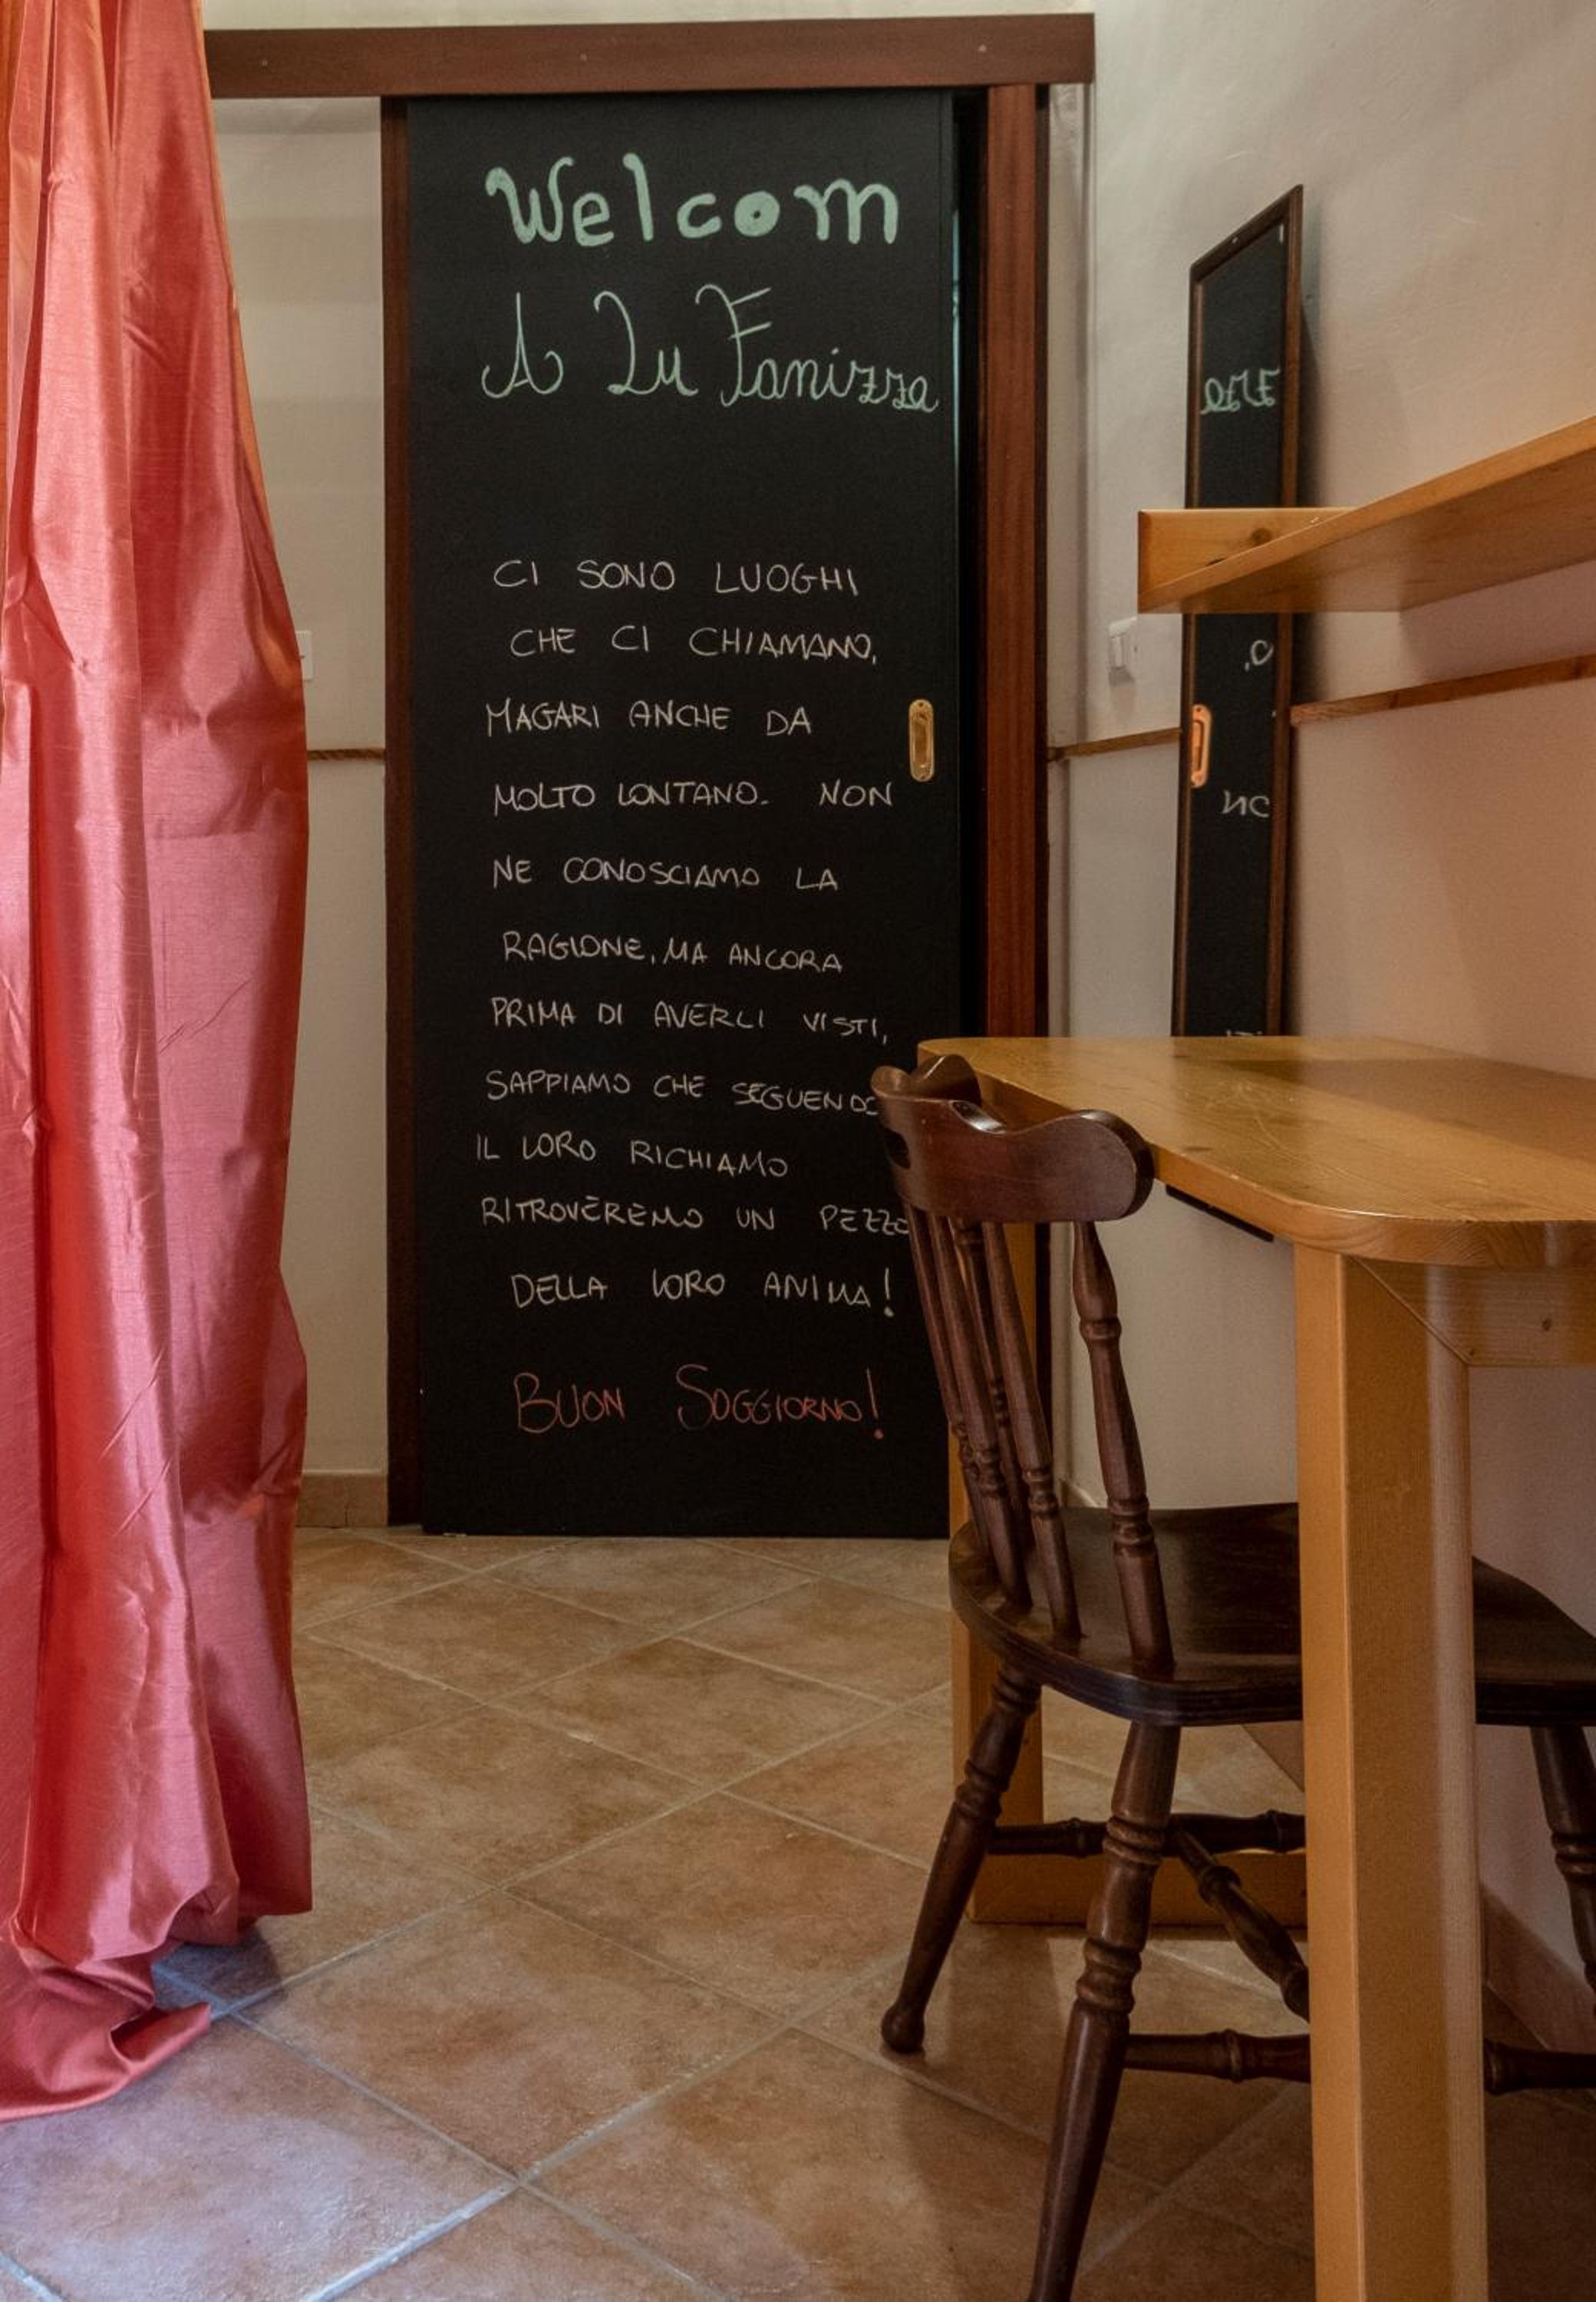 Welcom
A Lu Fanizza
CI SONO LUOGHI
CHE CI CHIAMANO,
MAGARI ANCHE DA
MOLTO LONTANO. NON
NE CONOSCIAMO LA
RAGIONE, MA ANCORA
PRIMA DI AVERLI VISTI,
SAPPIAMO CHE SEGUENDO
IL LORO RICHIAMO
RITROVEREMO UN PEZZO
DELLA LORO ANIMA!
BUON SOGGIORNO!